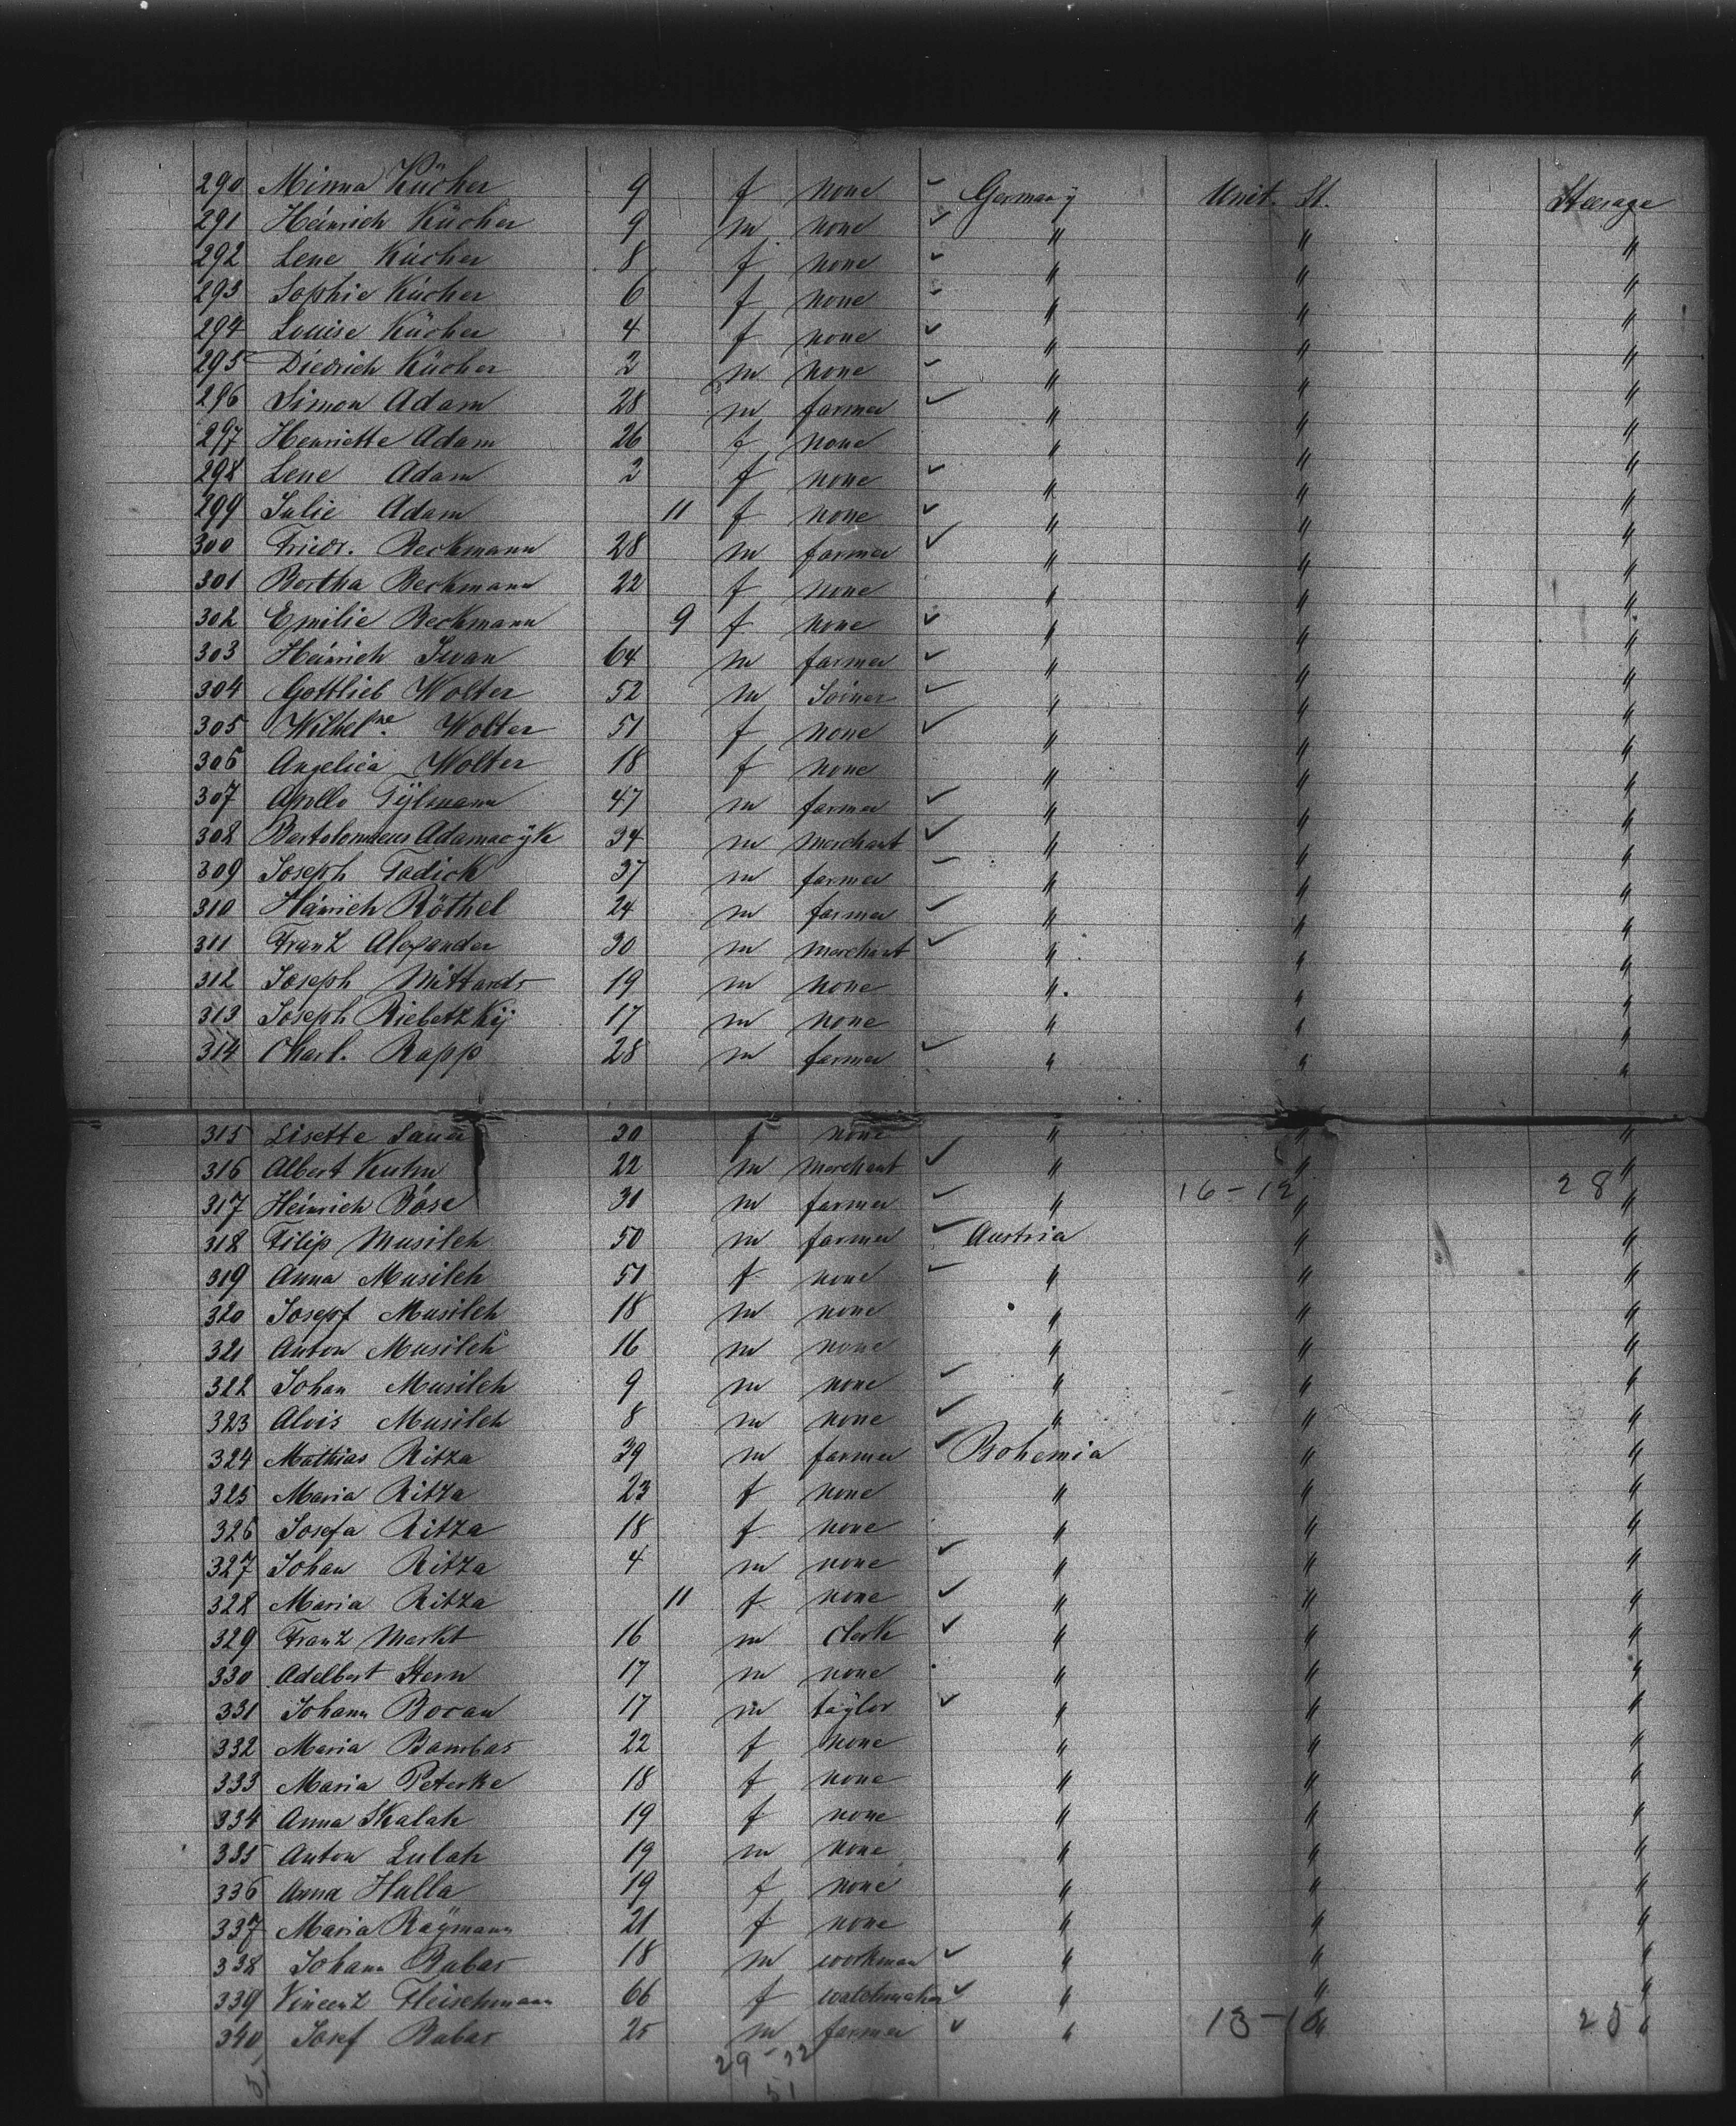 290 Minna Kücher 9 f none Germany Unit. St. Steerage
291 Heinrich Kücher 9 m none " " "
292 Lene Kücher 8 f none " " "
293 Sophie Kücher 6 f none " " "
294 Louise Kücher 4 f none " " "
295 Diedrich Kücher 2 m none " " "
296 Simon Adam 28 m farmer " " "
297 Henriette Adam 26 f none " " "
298 Lene Adam 2 f none " " "
299 Julie Adam 11 f none " " "
300 Friedr. Beckmann 28 m farmer " " "
301 Bertha Beckmann 22 f none " " "
302 Emilie Beckmann 9 f none " " "
303 Heinrich Iwan 64 m farmer " " "
304 Gottlieb Wolter 52 m Joiner " " "
305 Wilhelne. Wolter 51 f none " " "
306 Angelica Wolter 18 f none " " "
307 Apollo Tÿlmann 47 m farmer " " "
308 Bartolomaeus Adamacÿk 34 m merchant " " "
309 Joseph Tadick 37 m farmer " " "
310 Heinrich Röthel 24 m farmer " " "
311 Franz Alexander 30 m merchant " " "
312 Joseph 19 m none " " "
313 Joseph Riebetzkÿ 17 m none " " "
314 Charl. Rapp 28 m farmer " " "
315 Lisette Sauer 30 f none " " "
316 Albert Kuhn 22 m merchant " " "
16-12 28
317 Heinrich Böse 31 m farmer " " "
318 Filip Musileh 50 m farmer Austria " "
319 Anna Musileh 51 f none " " "
320 Josepf Musileh 18 m none " " "
321 Anton Musileh 16 m none " " "
322 Johan Musileh 9 m none " " "
323 Alois Musileh 8 m none " " "
324 Mathias Ritza 39 m farmer Bohemia " "
325 Maria Ritza 23 f none " " "
326 Josefa Ritza 18 f none " " "
327 Johan Ritza 4 m none " " "
328 Maria Ritza 11 f none " " "
329 Franz Markt 16 m clerk " " "
330 Adelbert Stern 17 m none " " "
331 Johann Bocan 17 m taÿlor " " "
332 Maria Bambas 22 f none " " "
333 Maria Peterke 18 f none " " "
334 Anna Skalah 19 f none " " "
335 Anton Lulah 19 m none " " "
336 Anna Hulla 19 f none " " "
337 Maria Raÿmann 21 f none " " "
338 Johann Babas 18 m workman " " "
339 Vincenz Fleischmann 66 f watchmaker " " "
340 Josef Babas 25 m farmer " 13-16 " 25 "
51 29-22
51